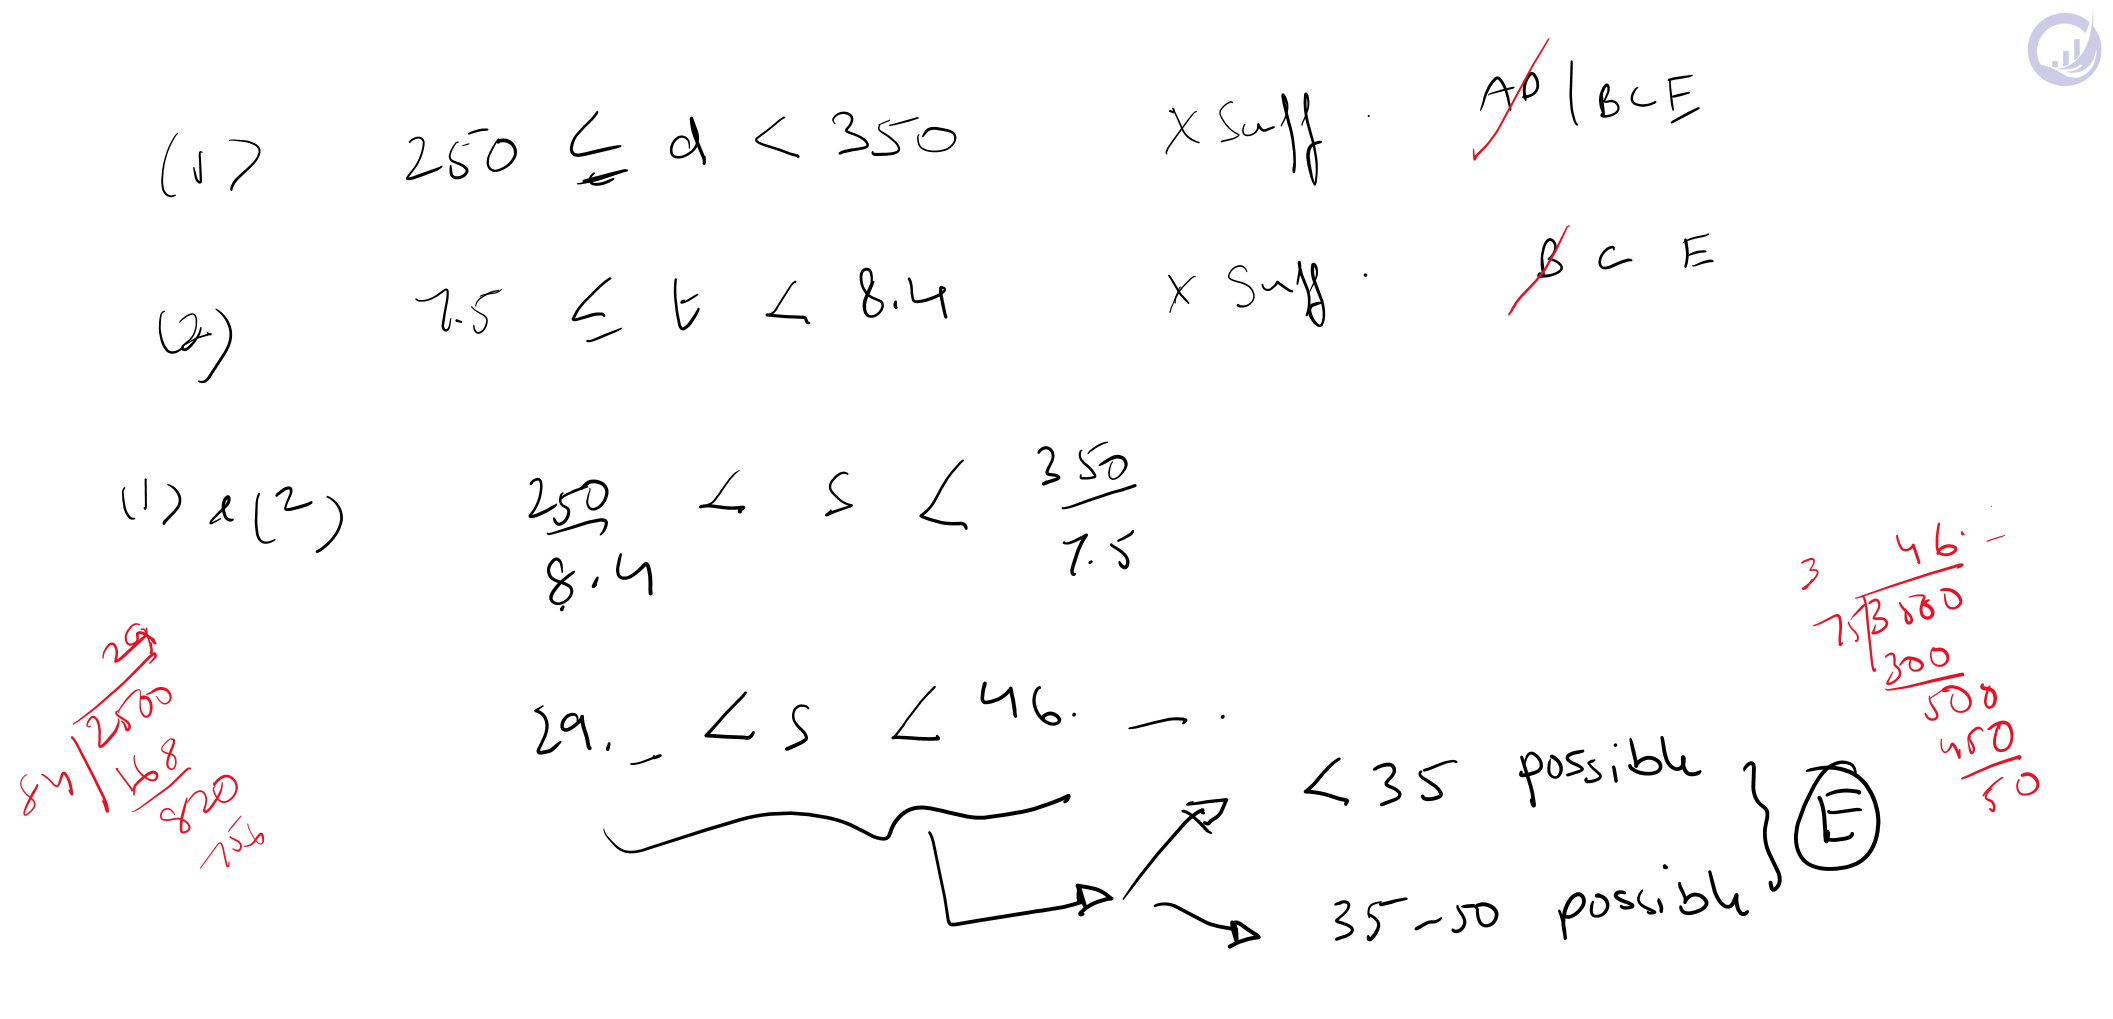 (1) 250 ≤ d < 350 × Suff. AD | BCE
(2) 7.5 ≤ t < 8.4 × Suff. B C E
(1) & (2) 250/8.4 < s < 350/7.5
29._ < s < 46. — .
< 35 possible
35-50 possible
E
29
84 2500
168
820
756
3 46. –
75 3500
300
500
450
50